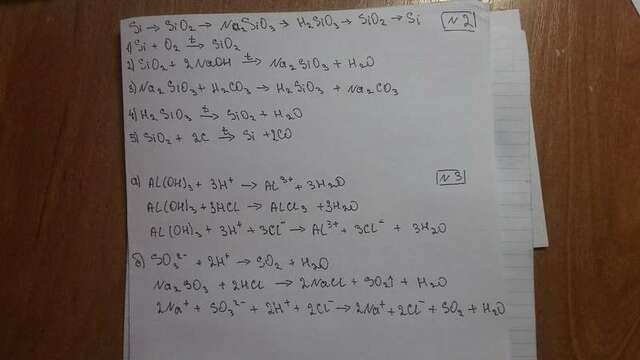 Si → SiO₂ → Na₂SiO₃ → H₂SiO₃ → SiO₂ → Si
N2
1) Si + O₂ t→ SiO₂
2) SiO₂ + 2NaOH t→ Na₂SiO₃ + H₂O
3) Na₂SiO₃ + H₂CO₃ → H₂SiO₃ + Na₂CO₃
4) H₂SiO₃ t→ SiO₂ + H₂O
5) SiO₂ + 2C t→ Si + 2CO
N3
а) Al(OH)₃ + 3H⁺ → Al³⁺ + 3H₂O
Al(OH)₃ + 3HCl → AlCl₃ + 3H₂O
Al(OH)₃ + 3H⁺ + 3Cl⁻ → Al³⁺ + 3Cl⁻ + 3H₂O
б) SO₃²⁻ + 2H⁺ → SO₂ + H₂O
Na₂SO₃ + 2HCl → 2NaCl + SO₂↑ + H₂O
2Na⁺ + SO₃²⁻ + 2H⁺ + 2Cl⁻ → 2Na⁺ + 2Cl⁻ + SO₂ + H₂O